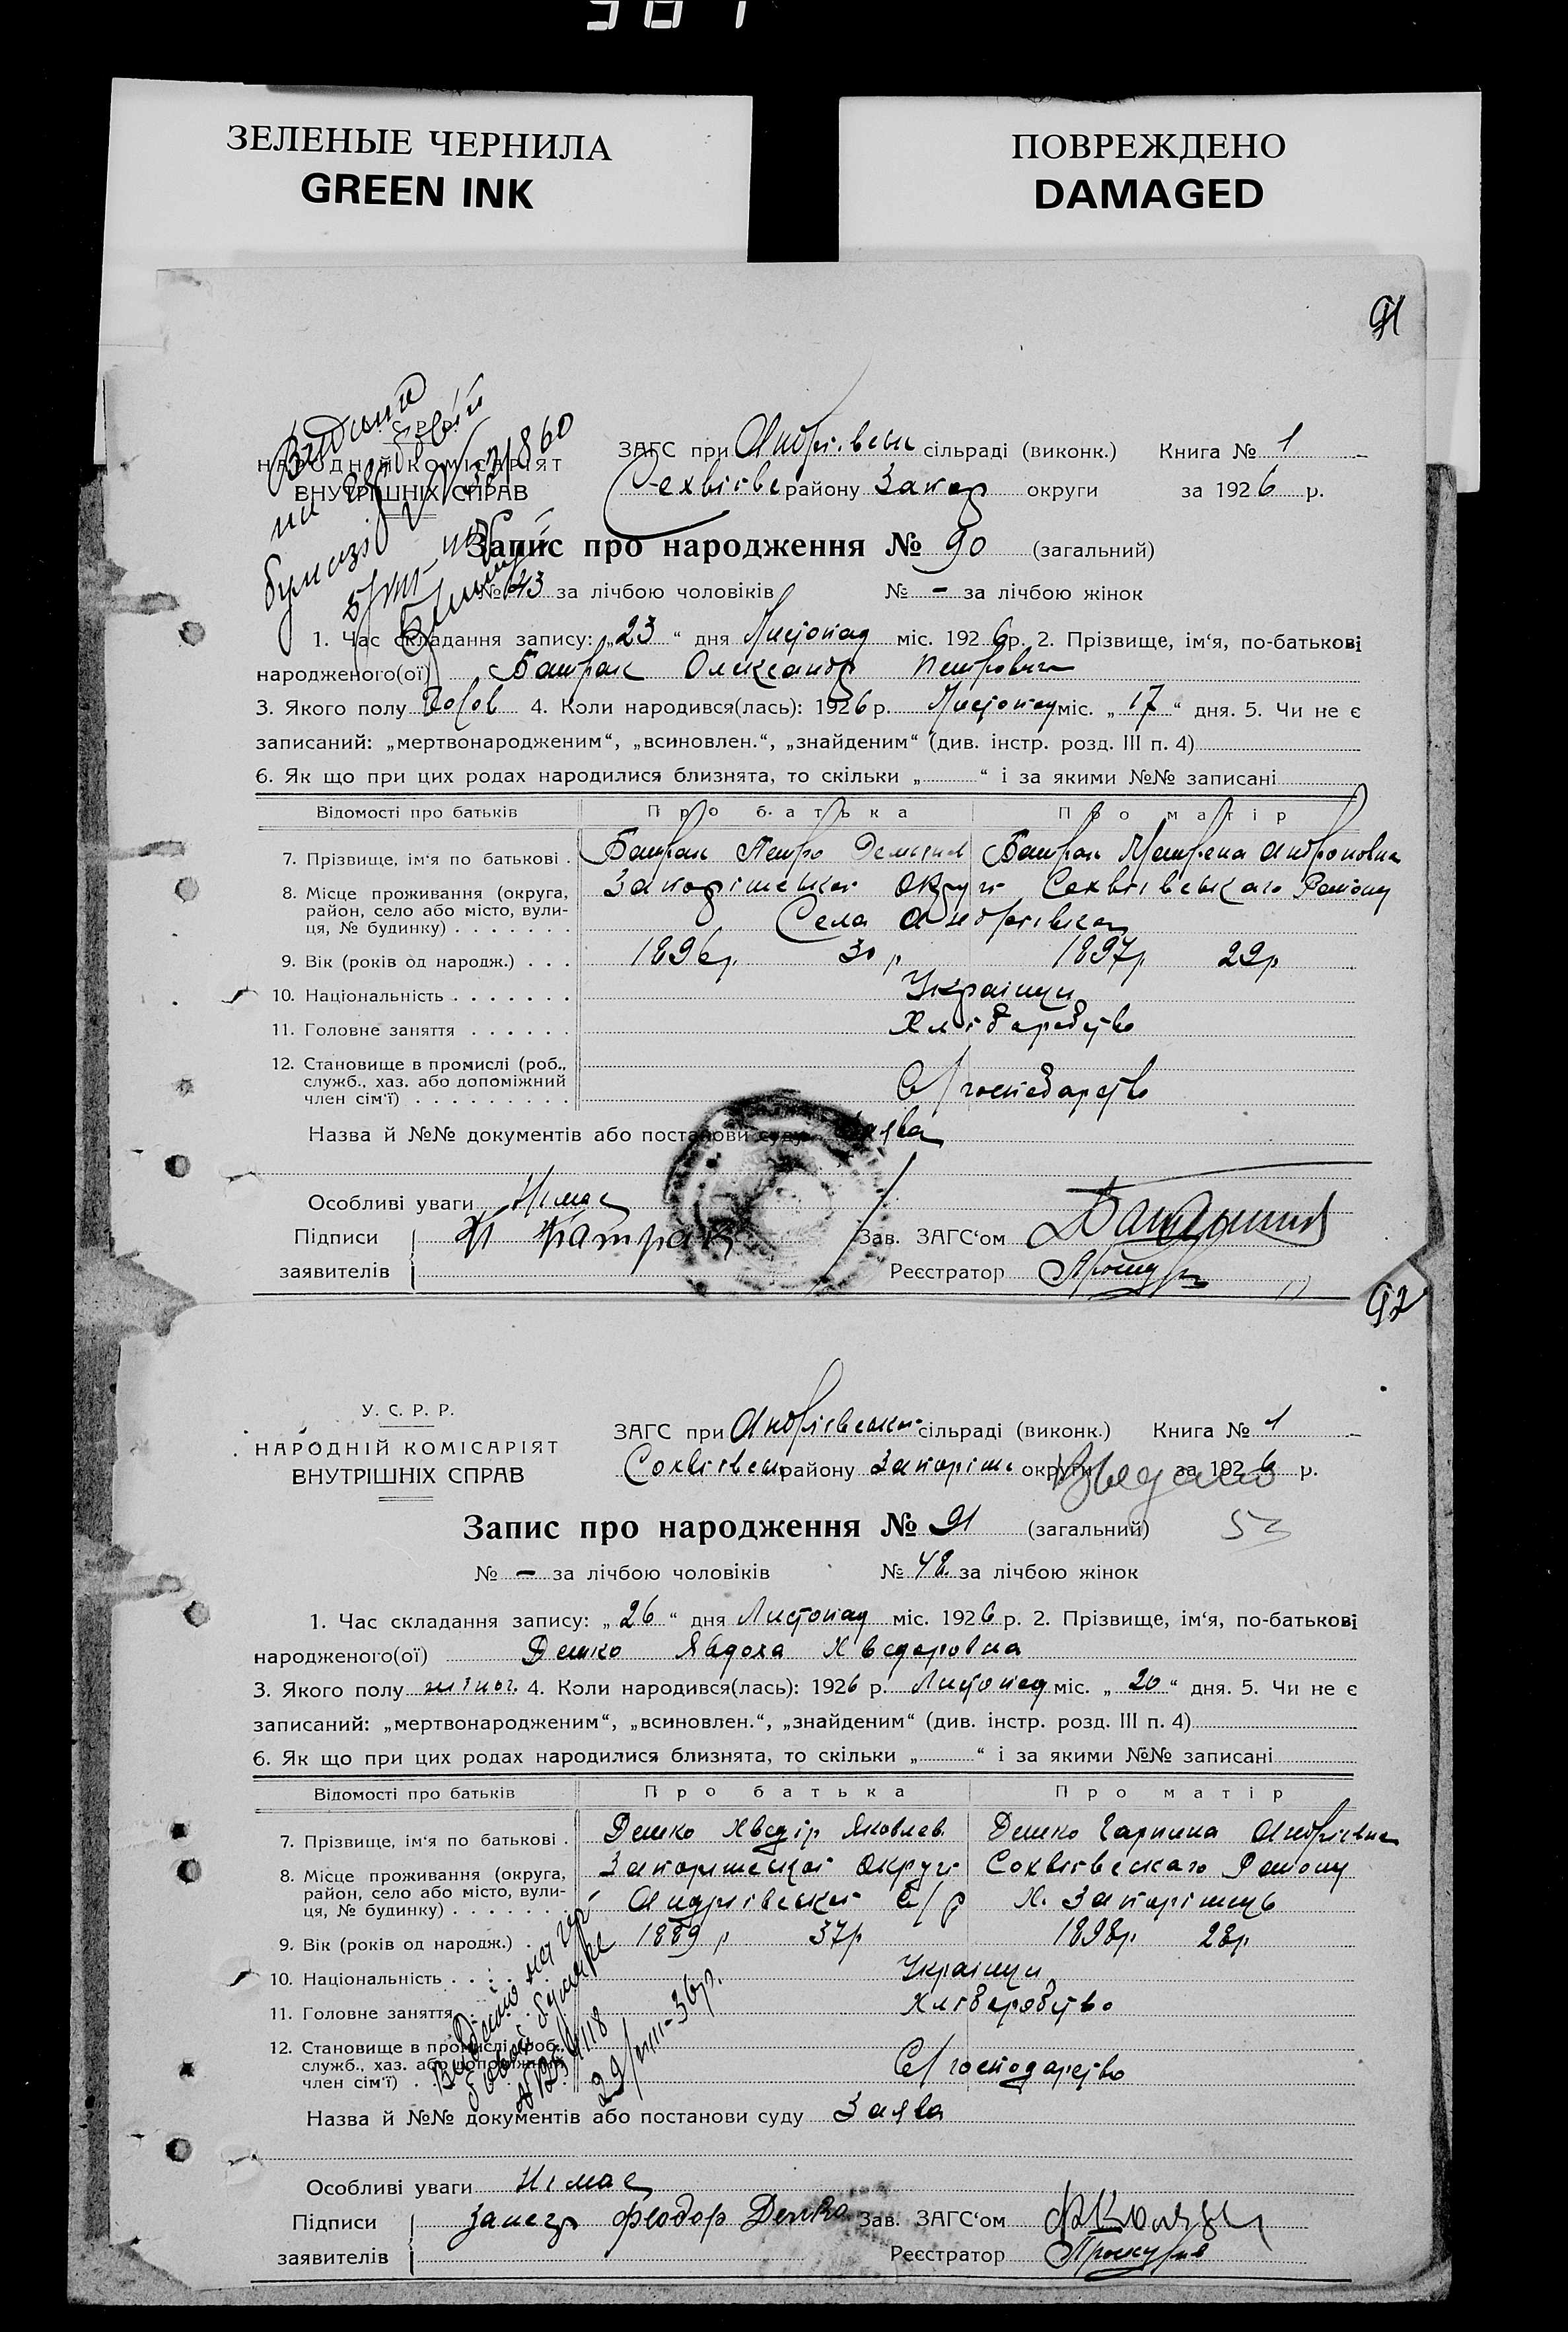 ЗЕЛЕНЫЕ ЧЕРНИЛА
GREEN INK
ПОВРЕЖДЕНО
DAMAGED
91
НАРОДНІЙ КОМІСАРІЯТ
ВНУТРІШНІХ СПРАВ
ЗАГС при Андріївськ сільраді (виконк.) Книга № 1
району Запор округи за 1926 р.
Запис про народження № 90 (загальний)
№ 43 за лічбою чоловіків № – за лічбою жінок
1. Час складання запису: „23“ дня Листопад міс. 1926 р. 2. Прізвище, ім‘я, по-батькові
народженого(ої) Батрак Олександр Петрович
3. Якого полу 4. Коли народився(лась): 1926 р. Листопад міс. „17“ дня. 5. Чи не є
записаний: „мертвонародженим“, „всиновлен.“, „знайденим“ (див. інстр. розд. III п. 4)
6. Як що при цих родах народилися близнята, то скільки „ “ і за якими №№ записані
Відомості про батьків Про батька Про матір
7. Прізвище, ім‘я по батькові . Батрак Петро Батрак Мотрена Андроновна
8. Місце проживання (округа, район, село або місто, вулиця, № будинку) Округи Району
Села Андріївка
9. Вік (років од народж.) . . . 1896р. 30 р 1897р 29р
10. Національність . . . . . . . Українци
11. Головне заняття . . . . . . Хліборобство
12. Становище в промислі (роб.,
служб., хаз. або допоміжний
член сім‘ї) . . . . . . . . . С/господарство
Назва й №№ документів або постанови суду Заява
Особливі уваги Німає
Підписи Батрак Зав. ЗАГС‘ом
заявителів Реєстратор
92
У. С. Р. Р.
НАРОДНІЙ КОМІСАРІЯТ
ВНУТРІШНІХ СПРАВ
ЗАГС при Андріївськи сільраді (виконк.) Книга № 1
району Запоріж округи за 1926 р.
53
Запис про народження № 91 (загальний)
№ – за лічбою чоловіків № 48 за лічбою жінок
1. Час складання запису: „26“ дня Листопад міс. 1926 р. 2. Прізвище, ім‘я, по-батькові
народженого(ої) Демко Явдоха Хведоровна
3. Якого полу жіноч. 4. Коли народився(лась): 1926 р. Листопад міс. „20“ дня. 5. Чи не є
записаний: „мертвонародженим“, „всиновлен.“, „знайденим“ (див. інстр. розд. III п. 4)
6. Як що при цих родах народилися близнята, то скільки „ “ і за якими №№ записані
Відомості про батьків Про батька Про матір
7. Прізвище, ім‘я по батькові . Демко Хведір Яковлев. Демко Гарпина Андріївна
8. Місце проживання (округа, Округи Району
район, село або місто, вули-
ця, № будинку) . . . . . . . С/р Х. Запоріжець
9. Вік (років од народж.) 1889 р 37р 1898р 28р.
10. Національність . . . Українци
11. Головне заняття Хліборобство
12. Становище в промислі (роб.,
служб., хаз. або допоміжний
член сім‘ї) . С/господарство
Назва й №№ документів або постанови суду Заява
Особливі уваги Німає
Підписи Феодор Демко Зав. ЗАГС‘ом
заявителів Реєстратор